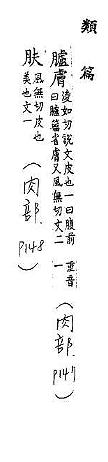 類篇
臚膚
凌如切說文皮也一曰腹前
曰臚籀省膚又風無切文二
重音
一
(肉部 P147)
肤
風無切皮也
美也文一
(肉部 P148)